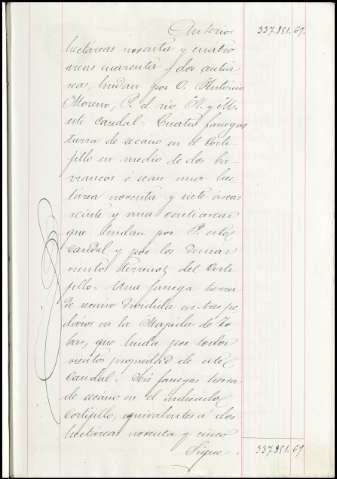 Anterior 337.951.69.
hectáreas noventa y cuatro
areas cuarenta y dos centia-
reas, lindan por O. Antonio
Moreno, P. el rio N. y M.
este Caudal. Cuatro fanegas
tierra de secano en el Corti-
jillo en medio de dos ba-
rrancos ó sean una hec-
tárea noventa y siete áreas
veinte y una centiareas
que lindan por P. este
Caudal y por los demas
vientos terrenos del Corti-
jillo. Una fanega tierra
de secano dividida en tres pe-
dazos en la de To-
bar, que linda por todos
vientos propiedad de este
Caudal. Seis fanegas tierra
de secano en el indicado
Cortijillo, equivalentes á dos
hectáreas noventa y cinco
Sigue. 337.951.69